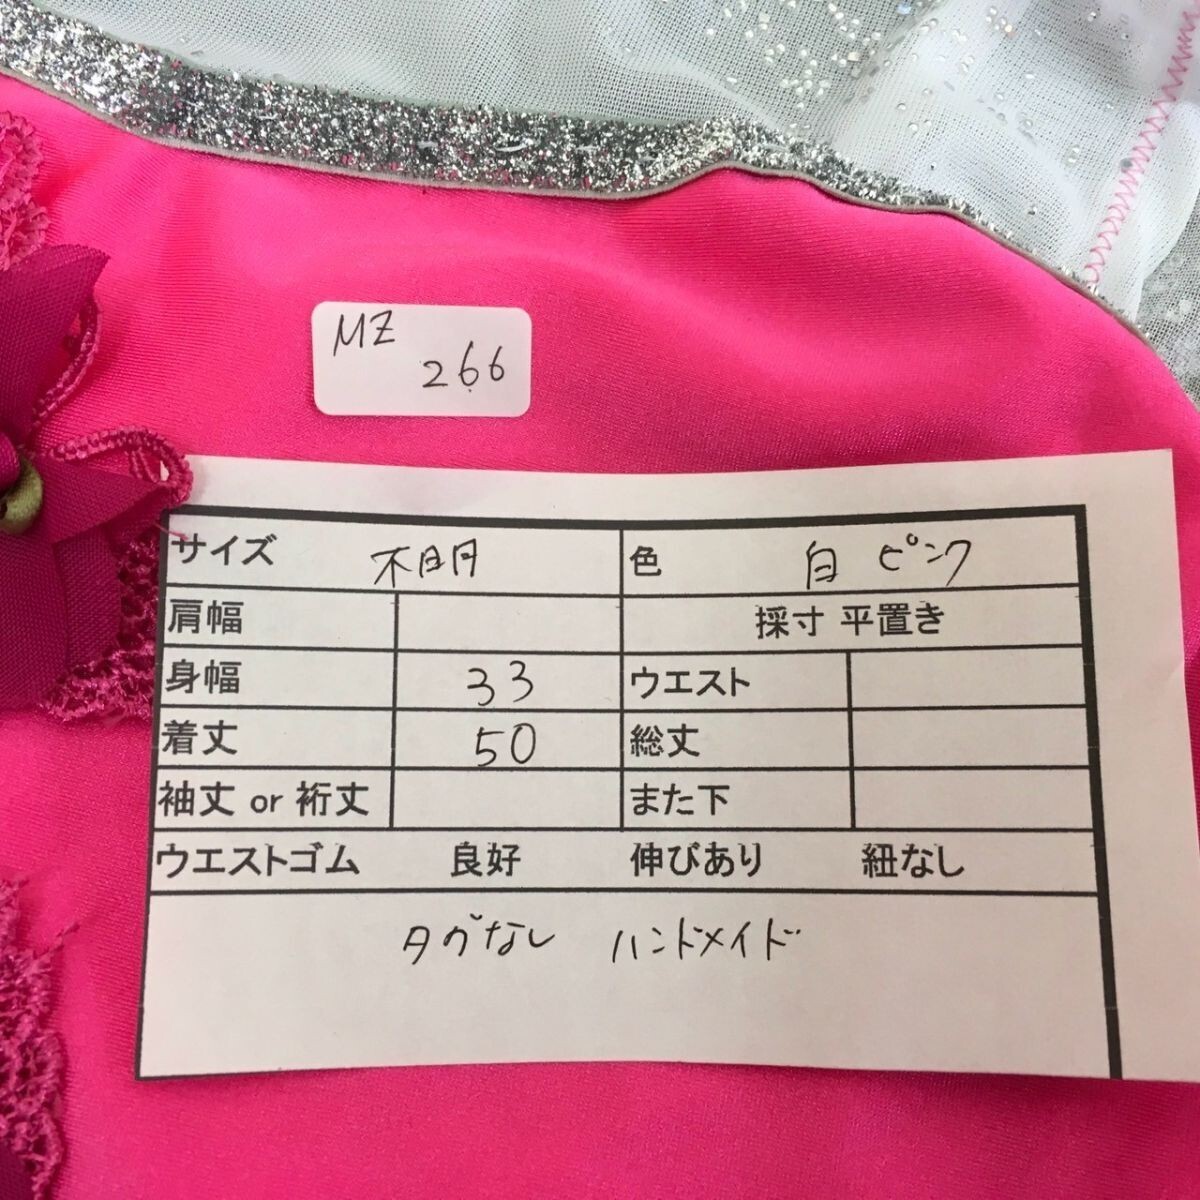 MZ
266
サイズ 不明 色 白 ピンク
肩幅 採寸 平置き
身幅 33 ウエスト
着丈 50 総丈
袖丈 or 裄丈 また下
ウエストゴム 良好 伸びあり 紐なし
タグなし ハンドメイド